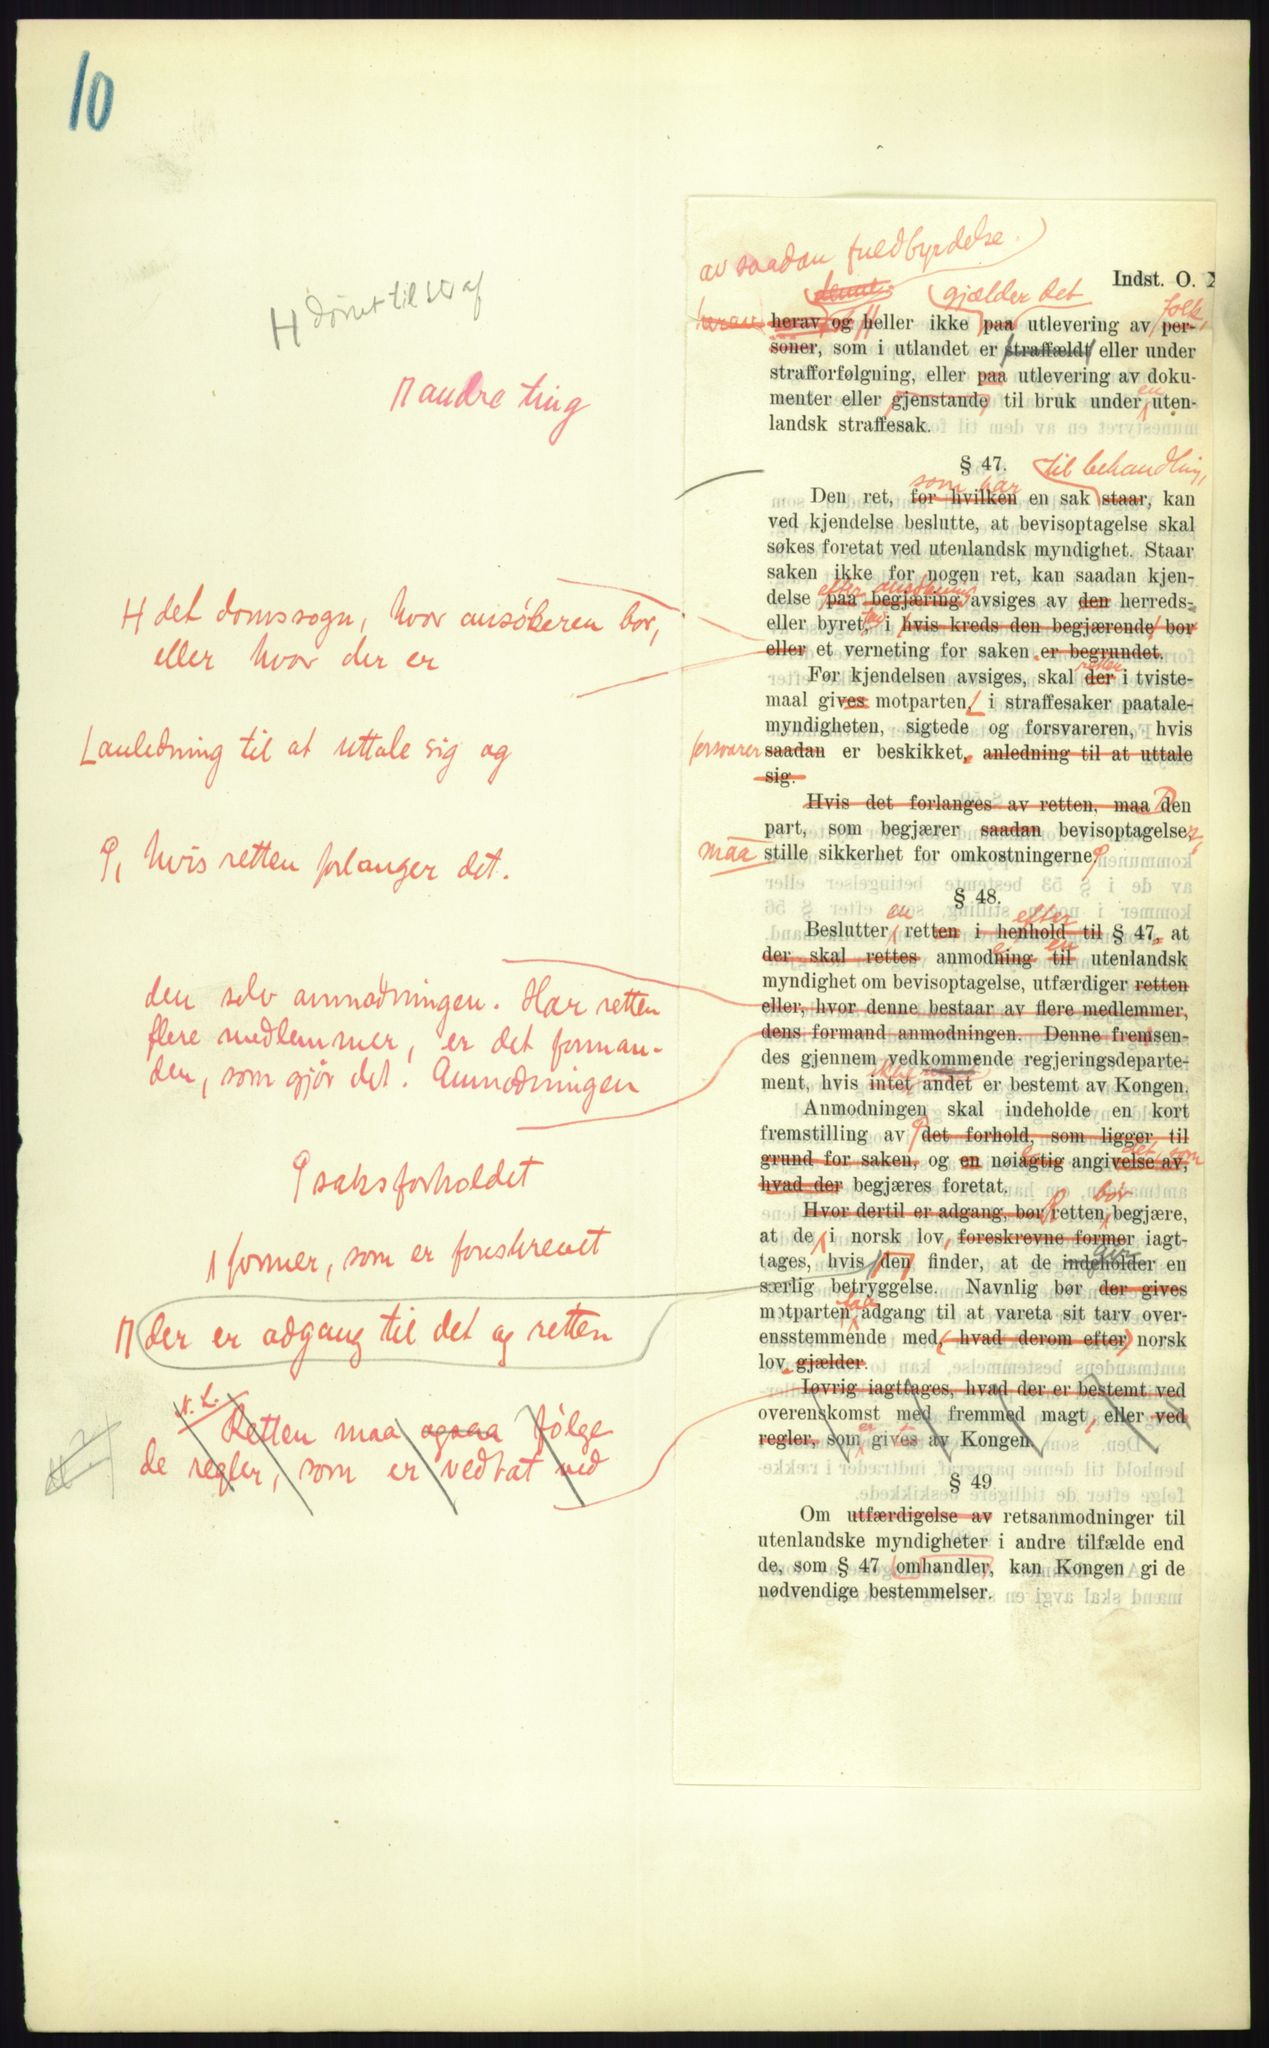 10
H dømt til straf
Π andre ting
H det domssogn, hvor ansökeren bor,
eller hvor der er
L anledning til at uttale sig og
φ, hvis retten forlanger det.
den selv anmodningen. Har retten
flere medlemmer, er det forman-
den, som gjør det. Anmodningen
φ saksforholdet
∧ former, som er foreskrevet
Π der er adgang til det og retten
Retten maa ogsaa følge
de regler, som er vedtat ved
av saadan fuldbyrdelse.
denne
gjælder det
Indst. O. X
folk,
herav herav og heller ikke paa utlevering av per-
soner, som i utlandet er straffældt eller under
strafforfølgning, eller paa utlevering av doku-
en
menter eller gjenstande til bruk under uten-
landsk straffesak.
§ 47. til behandling,
som har
Den ret, for hvilken en sak staar, kan
ved kjendelse beslutte, at bevisoptagelse skal
søkes foretat ved utenlandsk myndighet. Staar
saken ikke for nogen ret, kan saadan kjen-
efter ansökning
delse paa begjæring avsiges av den herreds-
eller byret, i hvis kreds den begjærende bor
eller et verneting for saken er begrundet.
retten
Før kjendelsen avsiges, skal der i tviste-
maal gives motparten, L i straffesaker paatale-
myndigheten, sigtede og forsvareren, hvis
forsvarer saadan er beskikket, anledning til at uttale
sig.
Hvis det forlanges av retten, maa den
part, som begjærer saadan bevisoptagelse,
maa stille sikkerhet for omkostningerne φ
§ 48.
en efter
Beslutter retten i henhold til § 47, at
en
der skal rettes anmodning til utenlandsk
myndighet om bevisoptagelse, utfærdiger retten
eller, hvor denne bestaar av flere medlemmer,
dens formand anmodningen. Denne fremsen-
des gjennem vedkommende regjeringsdeparte-
ikke
ment, hvis intet andet er bestemt av Kongen.
Anmodningen skal indeholde en kort
fremstilling av φ det forhold, som ligger til
det, som
grund for saken, og en nøiagtig angivelse av,
hvad der begjæres foretat.
bør
Hvor dertil er adgang, bør retten begjære,
at de ∧ i norsk lov foreskrevne former iagt-
gir
tages, hvis Π den finder, at de indeholder en
særlig betryggelse. Navnlig bør der gives
faa
motparten adgang til at vareta sit tarv over-
ensstemmende med, hvad derom efter norsk
lov gjælder.
Iøvrig iagttages, hvad der er bestemt ved
overenskomst med fremmed magt, eller ved
er
regler, som gives av Kongen.
§ 49
Om utfærdigelse av retsanmodninger til
utenlandske myndigheter i andre tilfælde end
de, som § 47 omhandler, kan Kongen gi de
nødvendige bestemmelser.